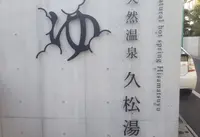 ゆ
天然温泉 久松湯
natural hot spring Hisamatsuyu